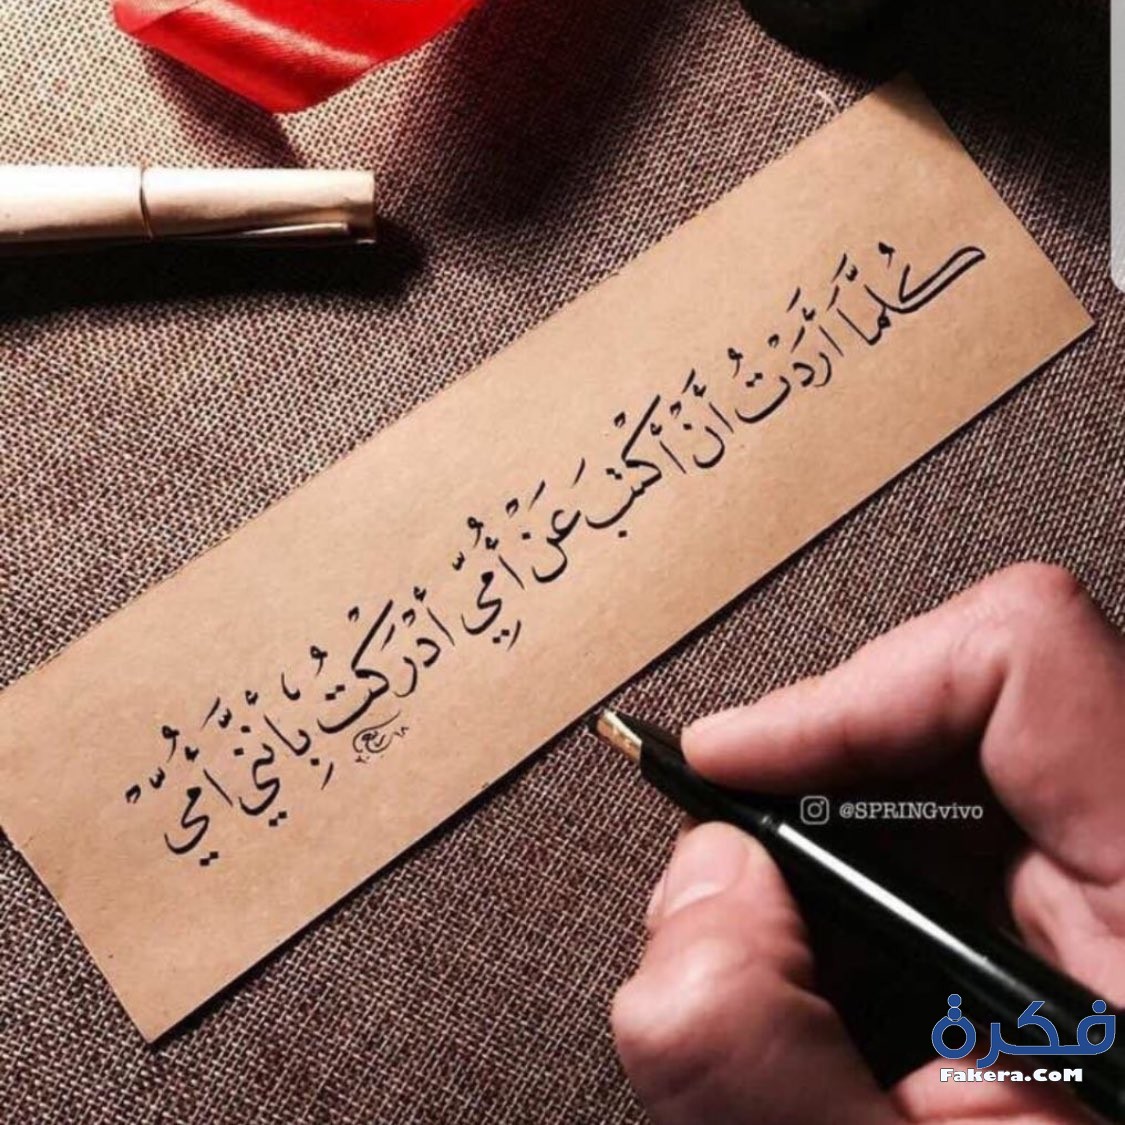 كُلَّمَا أَرَدْتُ أَنْ أَكْتُبَ عَنْ أُمِّي أَدْرَكْتُ بِأَنَّنِي أُمِّيٌّ
@SPRINGvivo
فكرة
Fakera.CoM